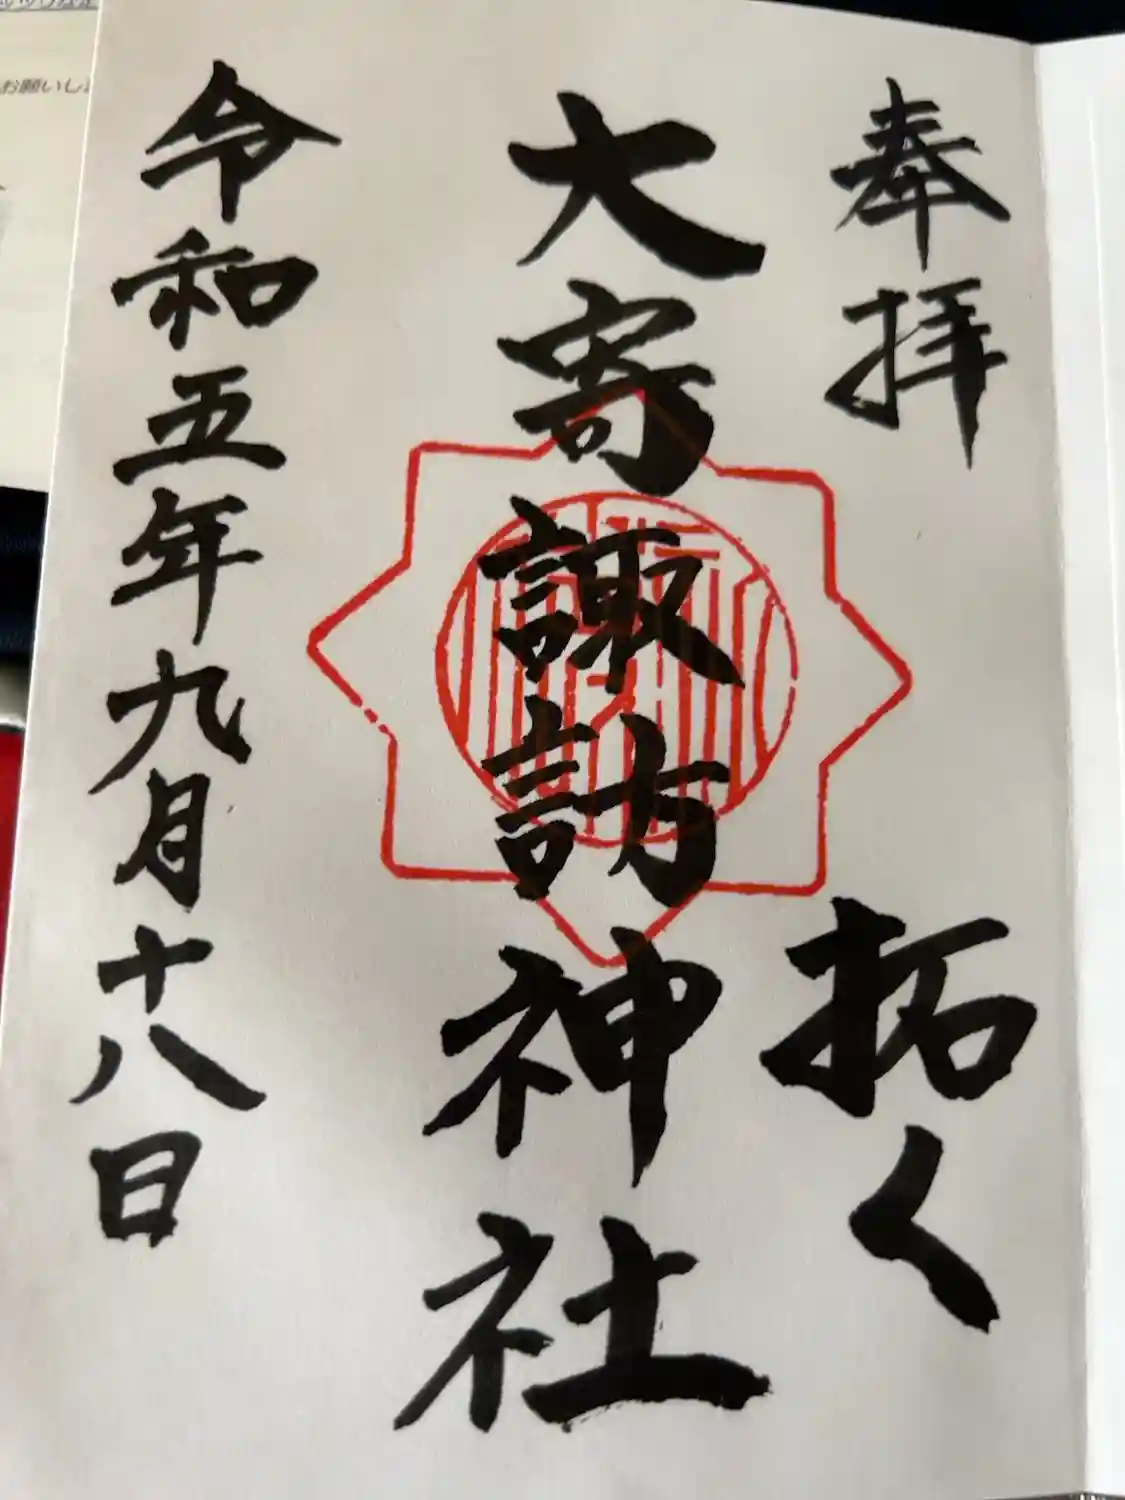 奉拝
拓く
大寄諏訪神社
令和五年九月十八日
お願いし